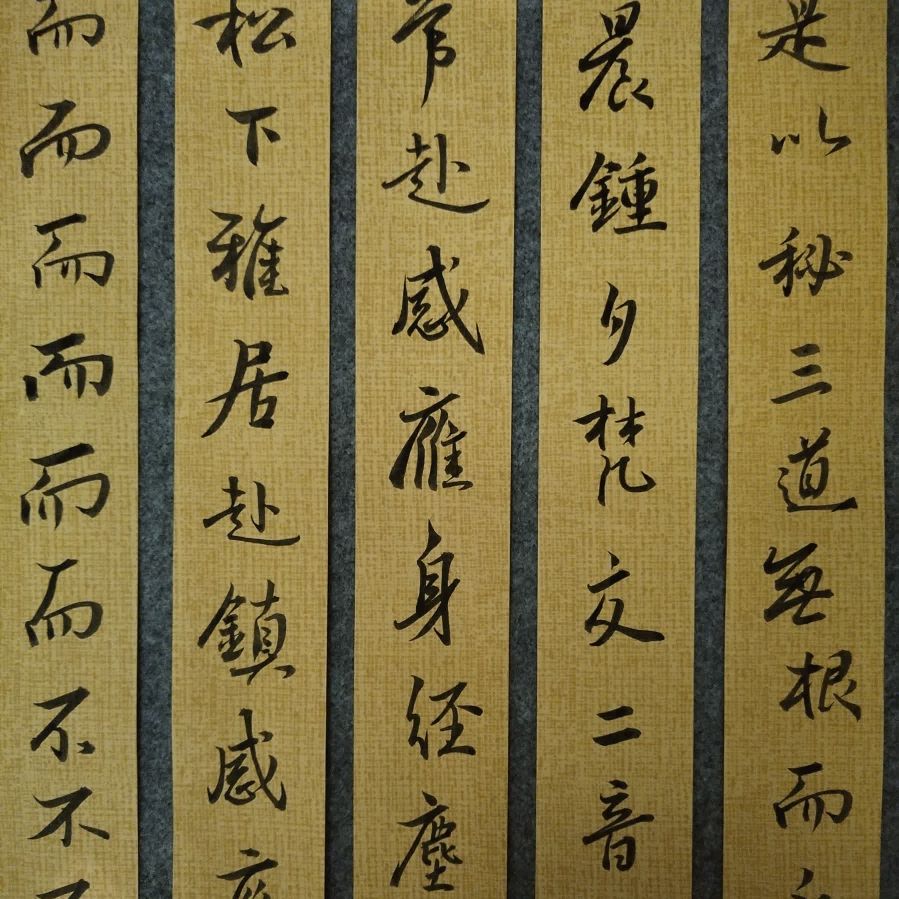 是以秘三道無根而
晨鍾夕梵交二音
常赴感應身經塵
松下雅居赴鎮感
而而而而而而不不